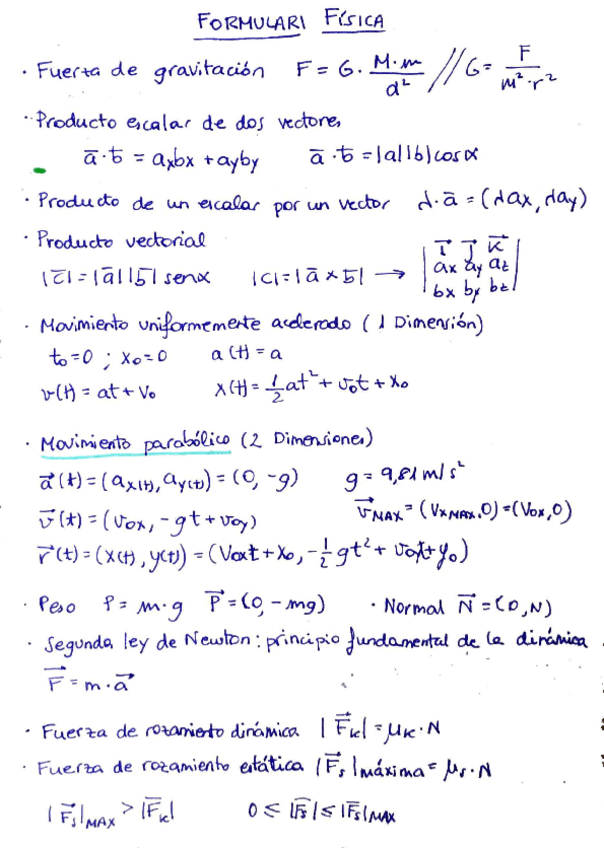 FORMULARI FÍSICA
· Fuerza de gravitación F = G · M·m / d² // G = F / m²·r²
· Producto escalar de dos vectores
a̅ · b̅ = axbx + ayby a̅ · b̅ = |a||b|cosα
· Producto de un escalar por un vector λ·a̅ = (λax, λay)
· Producto vectorial
|c̅| = |a̅||b̅| senα |c| = |a̅ × b̅| → | i⃗ j⃗ k⃗ |
| ax ay az |
| bx by bz |
· Movimiento uniformemente acelerado (1 Dimensión)
t₀=0 ; x₀=0 a(t) = a
v(t) = at + v₀ x(t) = ½at² + v₀t + x₀
· Movimiento parabólico (2 Dimensiones)
a⃗(t) = (ax(t), ay(t)) = (0, -g) g = 9,81 m/s²
v⃗(t) = (vox, -gt + voy) v⃗MAX = (vxMAX, 0) = (vox, 0)
r⃗(t) = (x(t), y(t)) = (voxt + x₀, -½gt² + voyt + y₀)
· Peso P = m·g P⃗ = (0, -mg) · Normal N⃗ = (0, N)
· Segunda ley de Newton: principio fundamental de la dinámica
F⃗ = m·a⃗
· Fuerza de rozamiento dinámica |F⃗k| = μk·N
· Fuerza de rozamiento estática |F⃗s|máxima = μs·N
|F⃗s|MAX > |F⃗k| 0 ≤ |F⃗s| ≤ |F⃗s|MAX